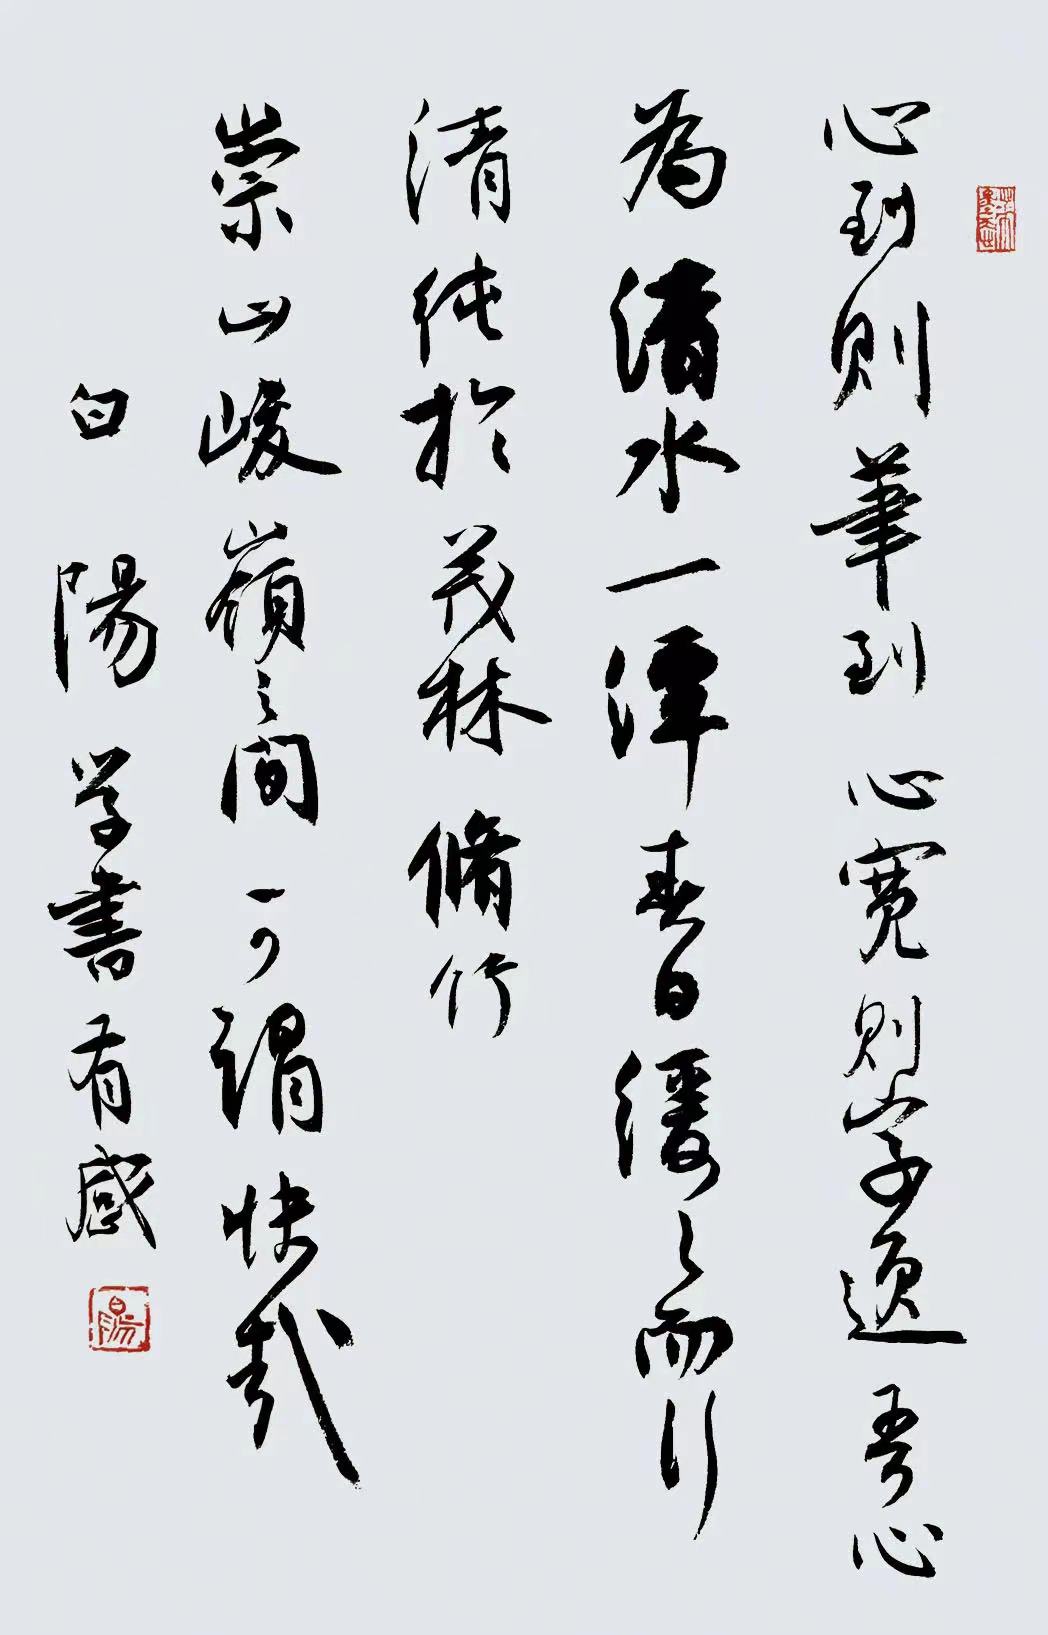 心到則筆到心宽則字逸吾心
為清水一潭春日緩之而行
清純於茂林脩竹
崇山峻嶺之間可謂快哉
白陽学書有感